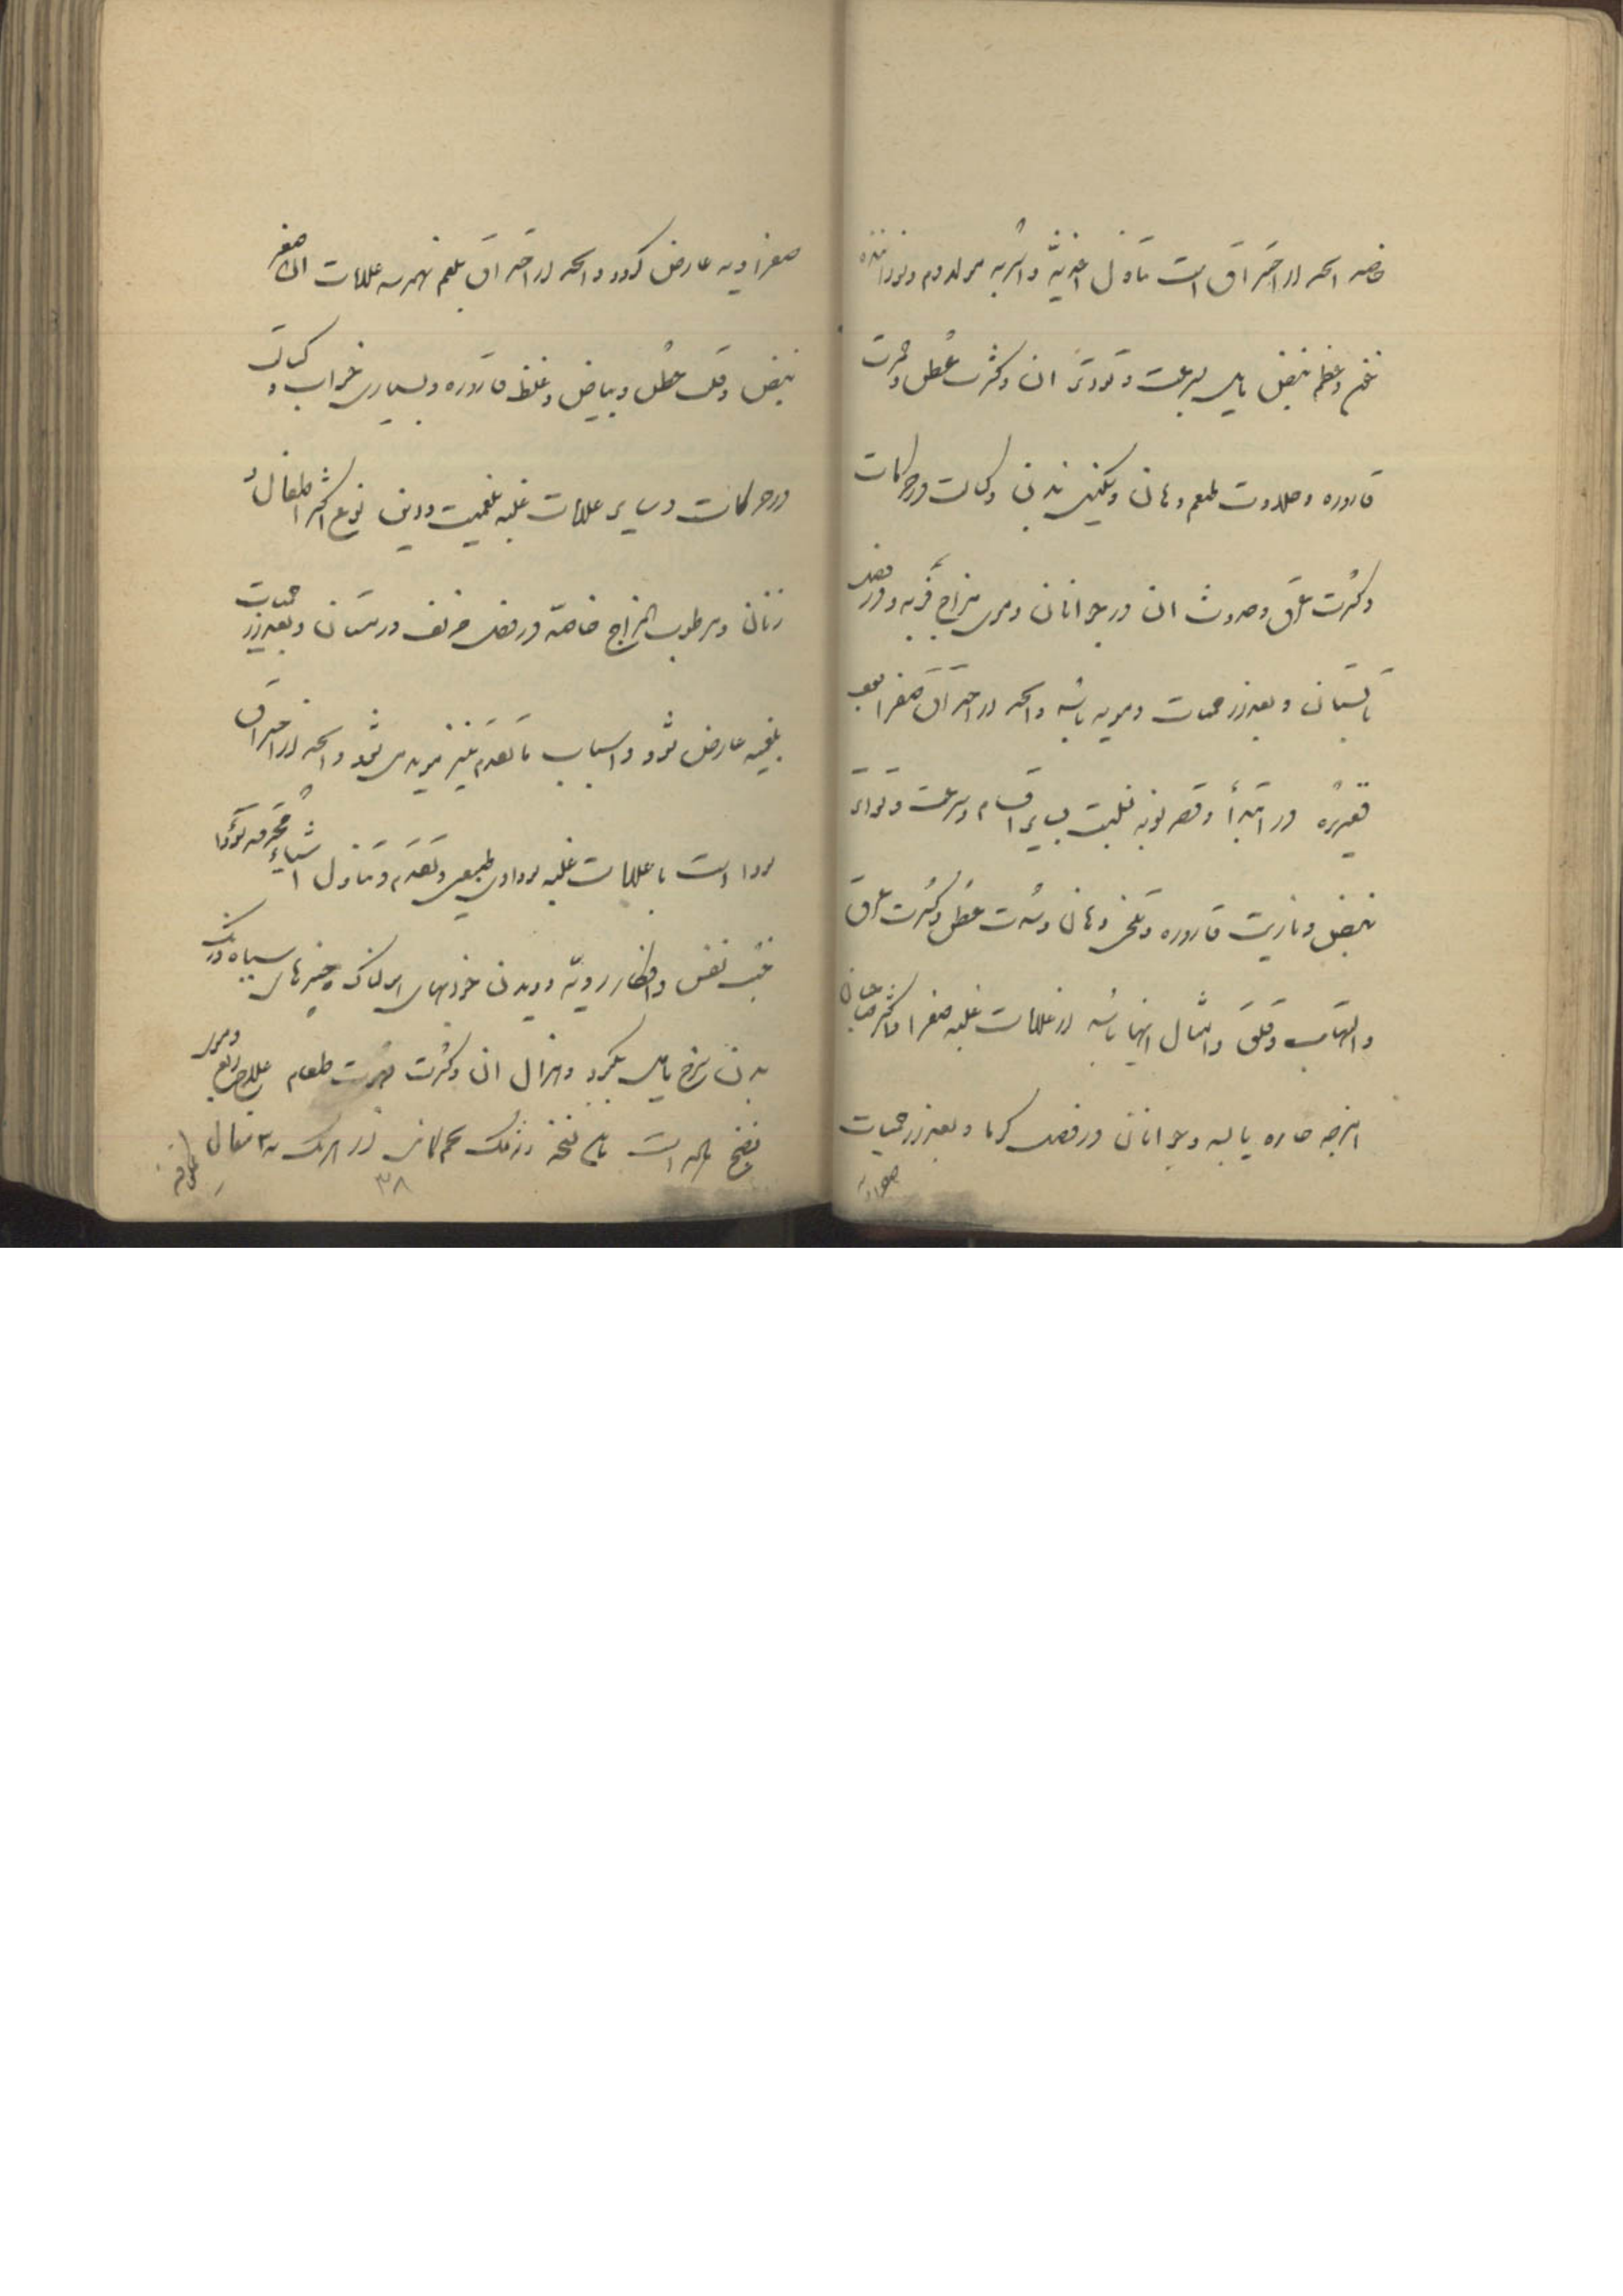 خاصه آنچه از احتراق است تناول اغذیه و اشربه مولد دم و نوزائیده
غم و عظم نبض مایل بسرعت و تواتر آن و کثرت عطش و حمرت
قاروره و حلاوت طعم دهان و سنگینی بدن و کسالت در حرکات
و کثرت عرق و حدوث آن در جوانان دموی مزاج فربه و در فصل
تابستان و بعد از حمیات دمویه باشد و آنچه از احتراق صفرا بعد
قشعریره در ابتدا و قصر نوبه نسبت بسایر اقسام و سرعت و تواتر
نبض و ناریت قاروره و تلخی دهان و شدت عطش و کثرت عرق
و التهاب و قلق و امثال اینها باشد از علامات غلبه صفرا و اکثر صاحبان
امزجه حاره یابسه و جوانان در فصل گرما و بعد از حمیات
صفراویه
صفراویه عارض گردد و آنچه از احتراق بلغم بهمرسد علامات آن صغر
نبض و قلت عطش و بیاض و غلظ قاروره و بسیاری خواب و کسالت
در حرکات و سایر علامات غلبه بلغمیت و این نوع اکثر اطفال و
زنان و مرطوب المزاج خاصه در فصل خریف و زمستان و بعد از حمیات
بلغمیه عارض شود و اسباب ما تقدم نیز مؤید می شود و آنچه از احتراق
سودا است با علامات غلبه سوداوی طبیعی و تقدم و تناول اشیاء محرقه سودا
خبث نفس و افکار ردیه و دیدن خوابهای هولناک و چیزهای سیاه رنگ
بدن سرخ مایل بکبود و هزال آن و کثرت شهوت طعام علاج ربع دموی
نضج ماده است باین نسخه رازیانه تخم کاسنی از هریک ۳ مثقال
۳۸